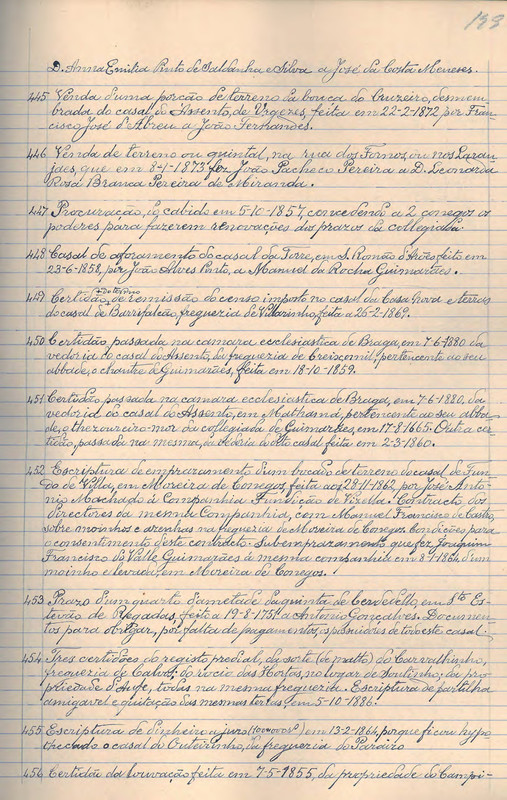 133
D. Anna Emilia Pinto de Saldanha e Silva a José da Costa Meneses.
445 Venda d'uma porção de terreno da bouça do Cruzeiro, desmem-
brada do casal do Assento, de Urgezes, feita em 22-2-1872 por Fran-
cisco José d'Abreu a João Fernandes.
446 Venda de terreno ou quintal, na rua dos Fornos, ou nos Laran-
jaes, que em 8-1-1873 fez João Pacheco Pereira a D. Leonarda
Rosa Branca Pereira de Miranda.
447 Procuração, do cabido em 5-10-1857, concedendo a 2 conegos os
poderes para fazerem renovações dos prazos da collegiada.
448 Casal de aforamento do casal da Torre, em S. Romão d'Arões feito em
23-6-1858, por João Alves Pinto, a Manuel da Rocha Guimarães.
449 Certidão, de remissão do censo imposto no casal da Casa Nova e terras
do casal de Barrifalcão, freguezia de Villarinho, feita a 26-2-1869.
450 Certidão, passada na camara ecclesiastica de Braga, em 7-6-1880 da
vedoria do casal do Assento, da freguezia de Creixomil, pertencente ao seu
abbade, o chantre de Guimarães, feita em 18-10-1859.
451 Certidão passada na camara ecclesiastica de Braga, em 7-6-1880, da
vedoria do casal do Assento, em Mathamá, pertencente ao seu abba-
de, o thezoureiro-mor da collegiada de Guimarães, em 17-8-1665. Outra cer-
tidão, passada na mesma, da vedoria do dito casal feita em 2-3-1860.
452 Escriptura de emprazamento d'um bocado de terreno do casal de Fun-
do de Villa, em Moreira de Conegos, feita aos 28-11-1862, por José Anto-
nio Machado á Companhia Fundição de Vizella. Contracto, dos
directores da mesma Companhia, com Manuel Francisco de Castro,
sobre moinhos e azenhas na freguezia de Moreira de Conegos. Condições para
o consentimento d'este contracto. Subemprazamento que fez Joaquim
Francisco do Valle Guimarães á mesma companhia em 8-1-1864, d'um
moinho e levada, em Moreira de Conegos.
453 Prazo d'um quarto d'ametade da quinta de Cerdedello, em Sto Es-
tevão de Regadas, feito a 19-8-1751 a Antonio Gonçalves. Documen-
tos para obrigar, por falta de pagamentos, os possuidores de todo este casal.
454 Tres certidões do registo predial, da sorte (de matto) do Carvalhinho,
freguezia de Calvos; do rocio das Hortas, no logar de Soutinho; da pro-
priedade d'Aufe, todas na mesma freguezia. Escriptura de partilha
amigavel e quitação das mesmas terras em 5-10-1886.
455 Escriptura de dinheiro a juro em 13-2-1864, porque ficou hypo-
thecado o casal do Outeirinho, da freguezia do Paraizo
456 Certidão da louvação feita em 7-5-1855, da propriedade do Campi-